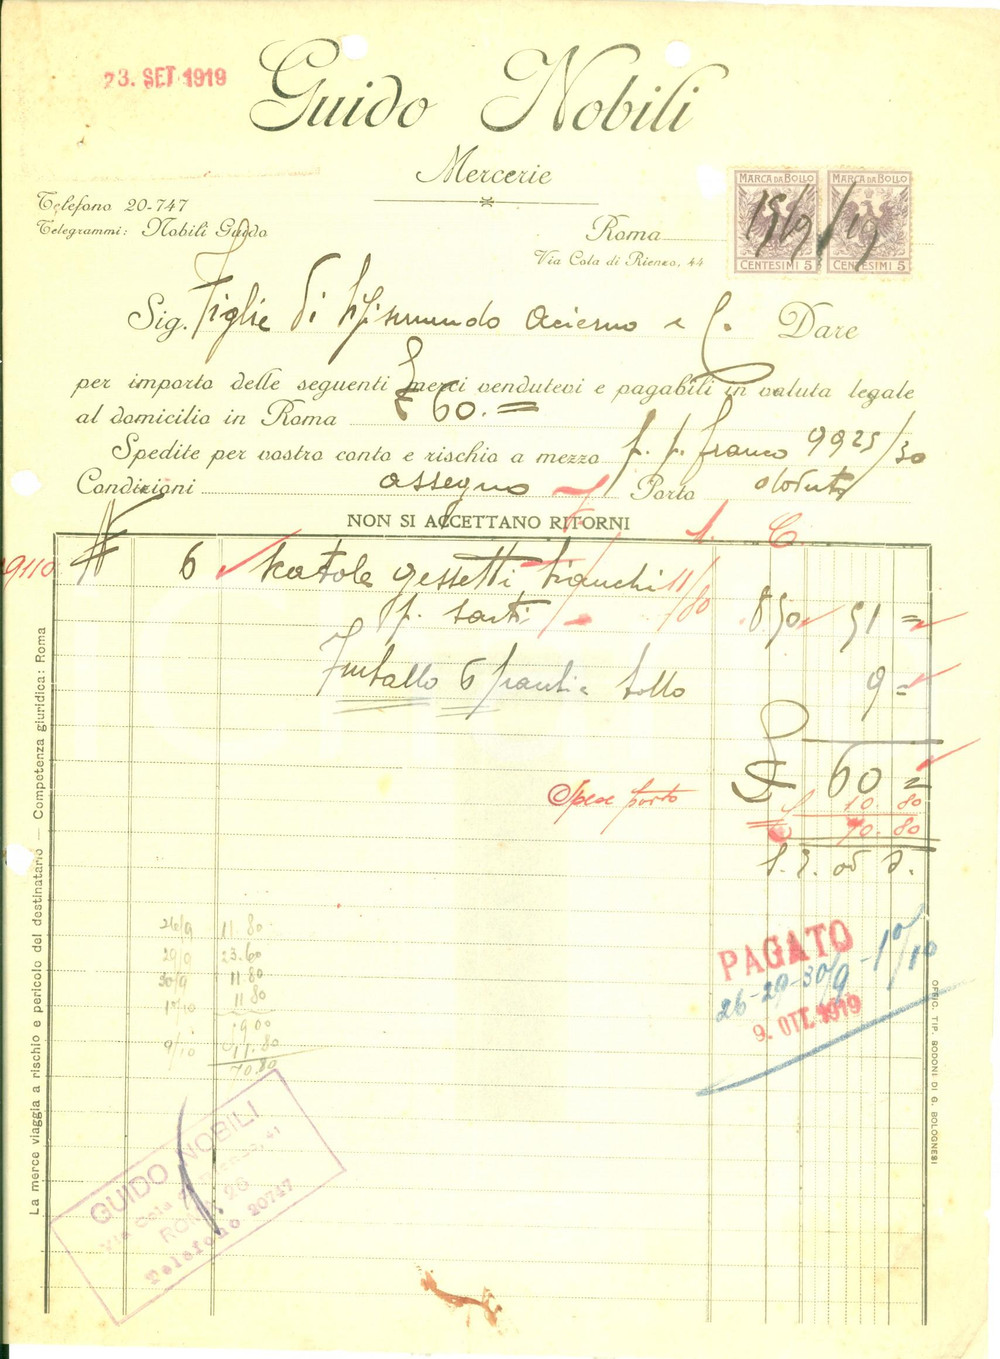 23. SET 1919
Guido Nobili
Mercerie
Telefono 20-747
Telegrammi: Nobili Guido
Roma
Via Cola di Rienzo, 44
MARCA DA BOLLO
CENTESIMI 5
MARCA DA BOLLO
CENTESIMI 5
15/9/19
Sig. Figlie di Sigismundo Acierno e C. Dare
per importo delle seguenti merci vendutevi e pagabili in valuta legale
al domicilio in Roma £ 60. =
Spedite per vostro conto e rischio a mezzo p. p. franco 9925/30
Condizioni assegno Porto
NON SI ACCETTANO RITORNI
L. C.
9110 6 scatole gessetti bianchi 11/80
p. sarti 8,50 51 =
Imballo 6 e bollo 9 =
£ 60 =
Spese porto 10.80
70.80
S. E. od O.
26/9 11.80
29/9 23.60
30/9 11.80
1°/10 11.80
9/10 11.80
70.80
PAGATO
26-29-30/9-1°/10
9. OTT. 1919
GUIDO NOBILI
Via Cola di Rienzo, 41
ROMA 28
Telefono 20747
La merce viaggia a rischio e pericolo del destinatario — Competenza giuridica: Roma
OFFIC. TIP. BODONI DI G. BOLOGNESI